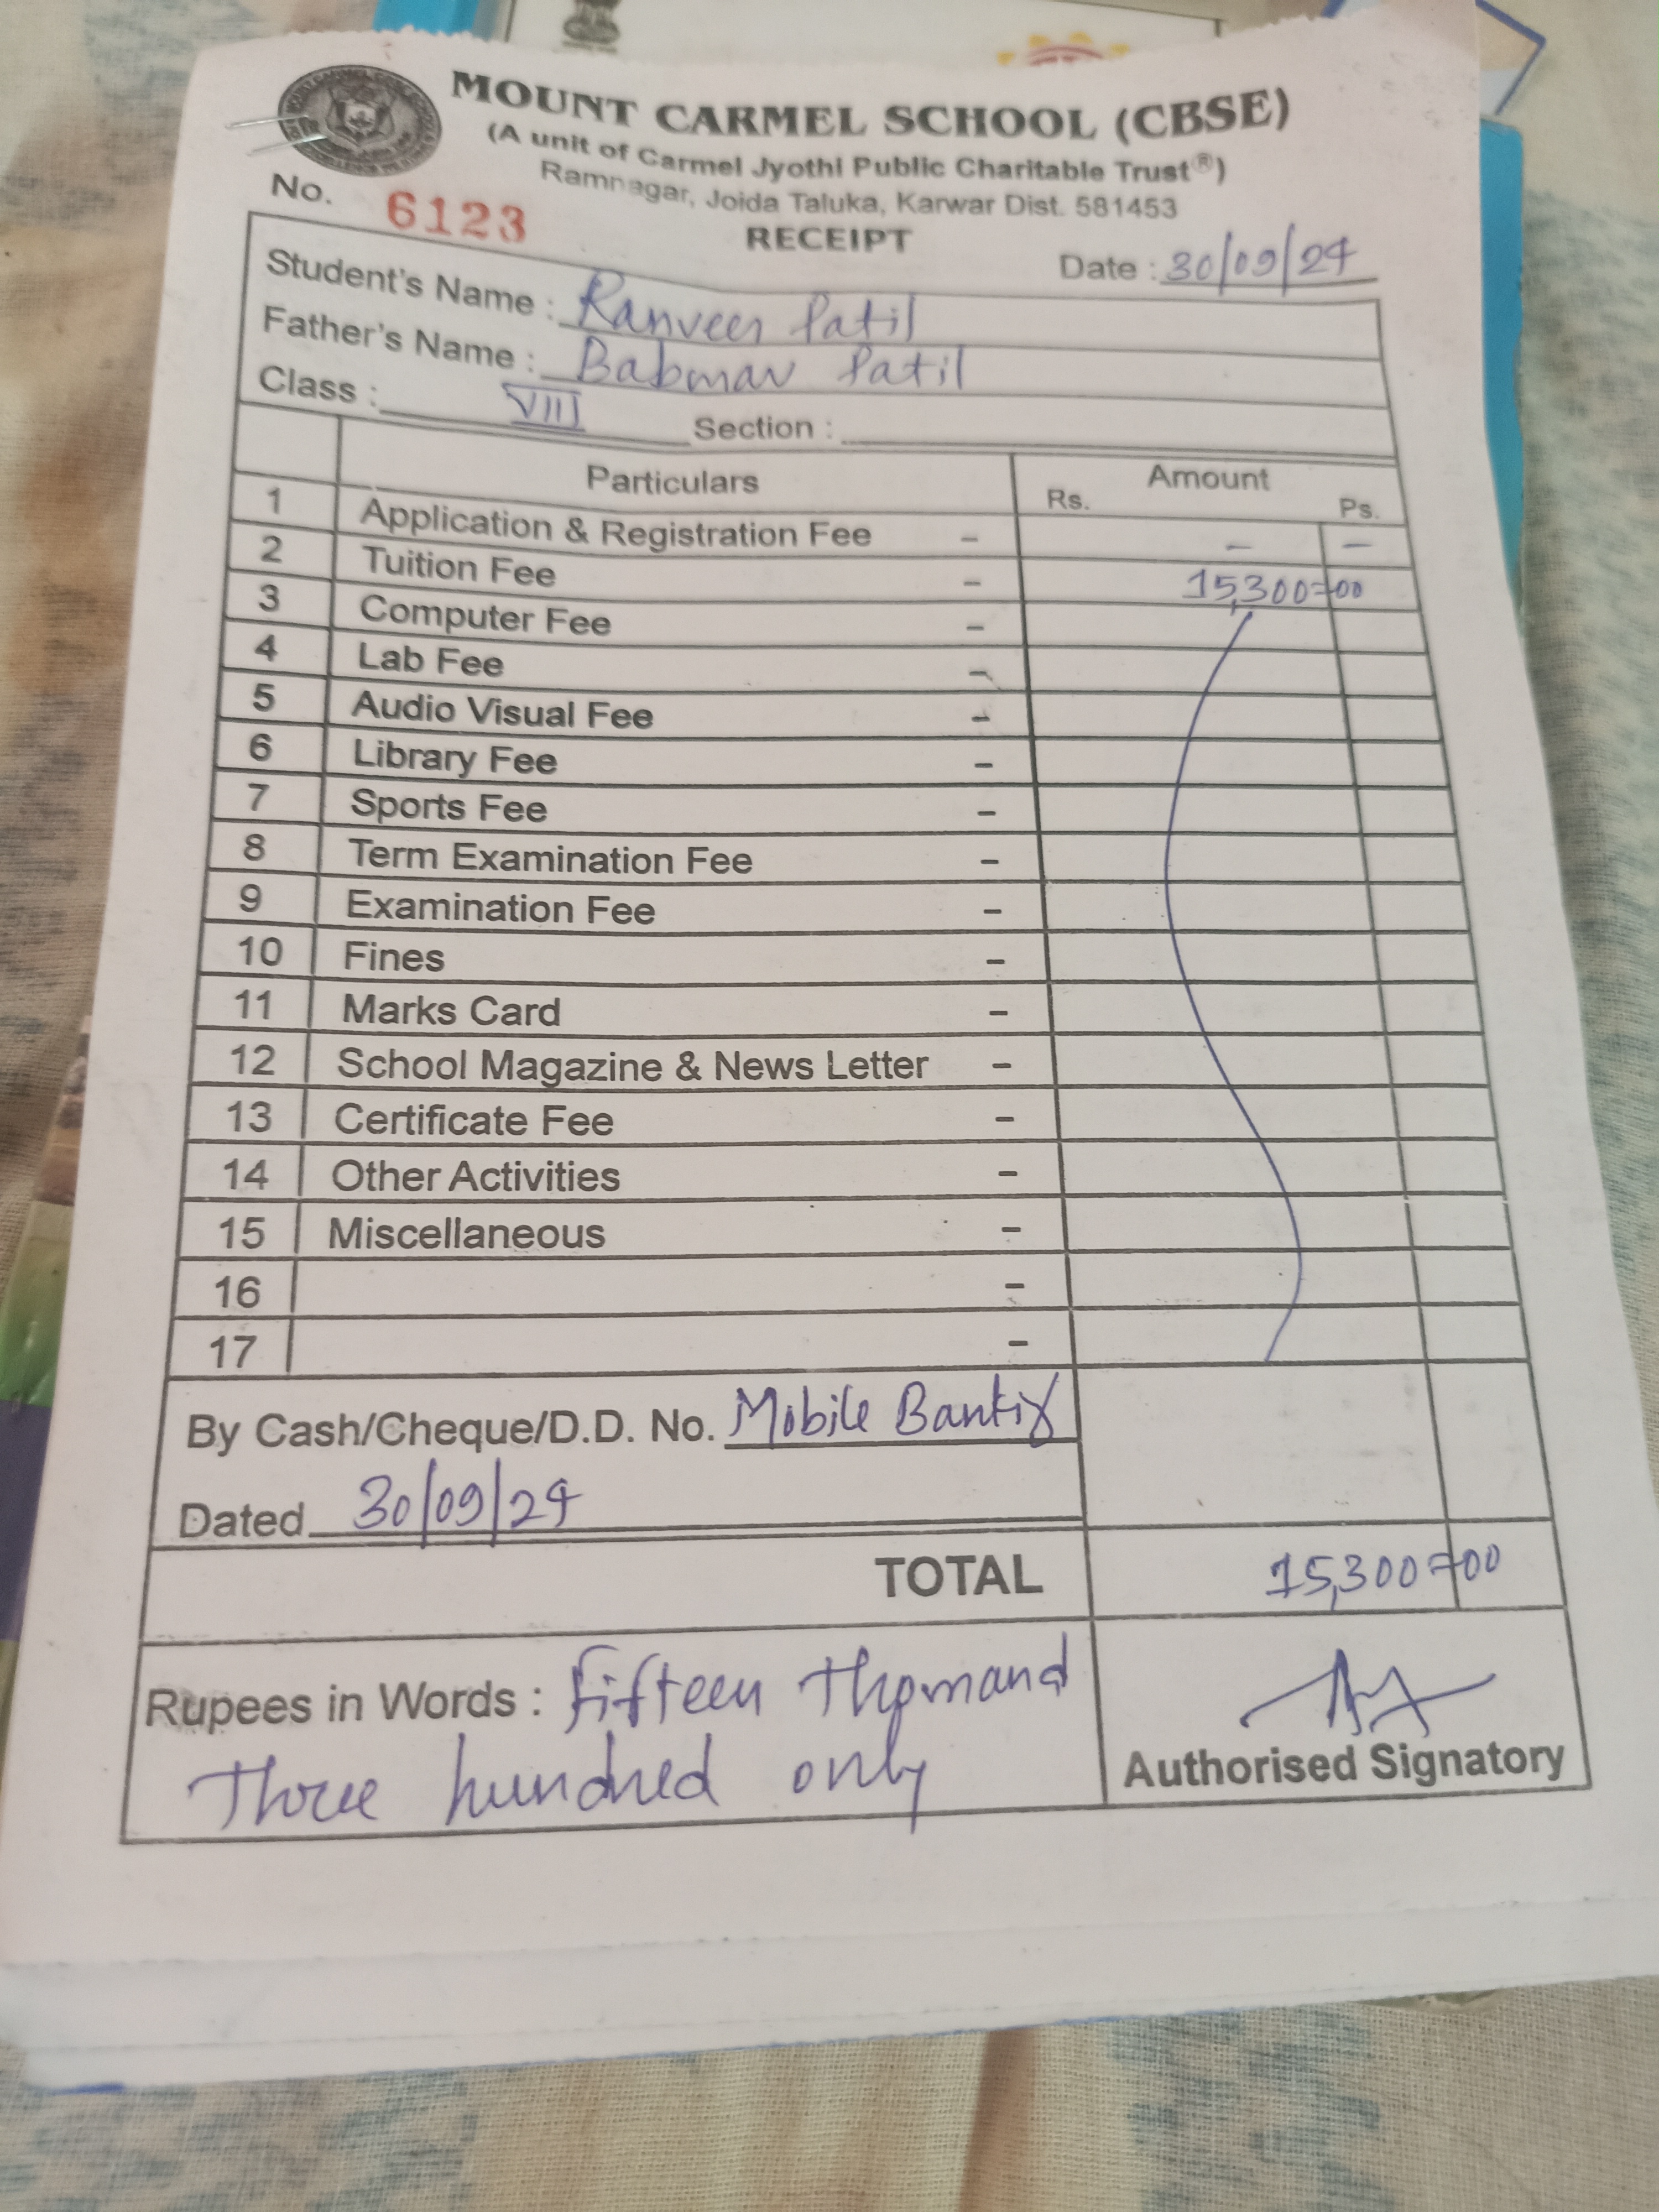 MOUNT CARMEL SCHOOL (CBSE)
(A unit of Carmel Jyothi Public Charitable Trust®)
Ramnagar, Joida Taluka, Karwar Dist. 581453
No. 6123
RECEIPT
Date : 30/09/24
Student's Name : Ranveer Patil
Father's Name : Patil
Class : VIII Section :
Particulars Amount
Rs. Ps.
1 Application & Registration Fee - - -
2 Tuition Fee - 15,300=00
3 Computer Fee -
4 Lab Fee -
5 Audio Visual Fee -
6 Library Fee -
7 Sports Fee -
8 Term Examination Fee -
9 Examination Fee -
10 Fines -
11 Marks Card -
12 School Magazine & News Letter -
13 Certificate Fee -
14 Other Activities -
15 Miscellaneous -
16 -
17 -
By Cash/Cheque/D.D. No. Mobile Banking
Dated 30/09/24
TOTAL 15,300=00
Rupees in Words : Fifteen Thousand
Three hundred only
Authorised Signatory